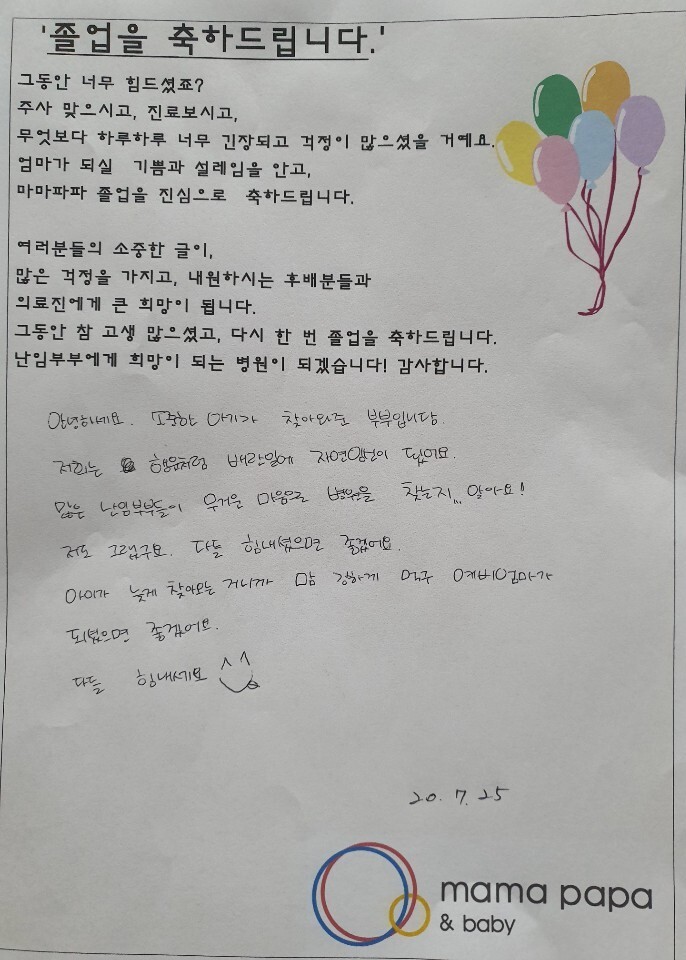 '졸업을 축하드립니다.'
그동안 너무 힘드셨죠?
주사 맞으시고, 진료보시고,
무엇보다 하루하루 너무 긴장되고 걱정이 많으셨을 거예요.
엄마가 되실 기쁨과 설레임을 안고,
마마파파 졸업을 진심으로 축하드립니다.
여러분들의 소중한 글이,
많은 걱정을 가지고, 내원하시는 후배분들과
의료진에게 큰 희망이 됩니다.
그동안 참 고생 많으셨고, 다시 한 번 졸업을 축하드립니다.
난임부부에게 희망이 되는 병원이 되겠습니다! 감사합니다.
안녕하세요. 소중한 아기가 찾아와준 부부입니당.
저희는 행운처럼 배란일에 자연임신이 됐어요.
많은 난임부부들이 무거운 마음으로 병원을 찾는지... 알아요!
저도 그랬구요. 다들 힘내셨으면 좋겠어요.
아이가 늦게 찾아오는 거니까 맘 강하게 먹구 예비엄마가
되셨으면 좋겠어요.
다들 힘내세요 ^^
20. 7. 25
mama papa
& baby